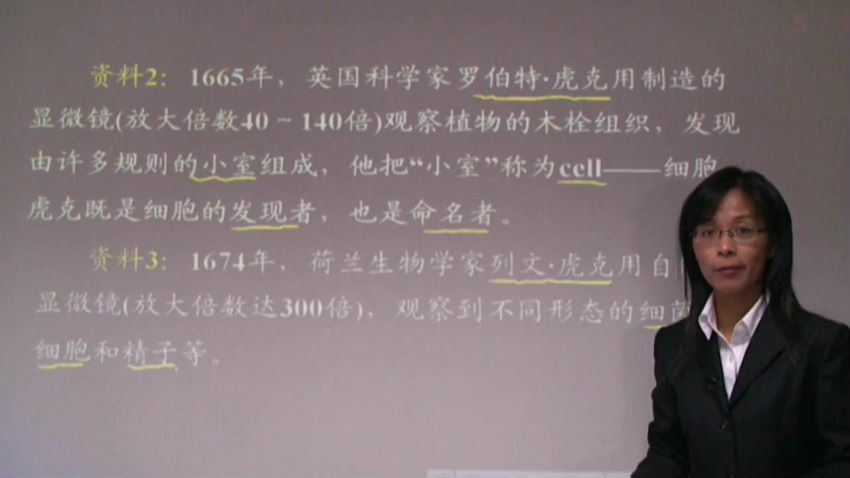 资料2：1665年，英国科学家罗伯特·虎克用制造的
显微镜(放大倍数40~140倍)观察植物的木栓组织，发现
由许多规则的小室组成，他把“小室”称为cell——细胞
虎克既是细胞的发现者，也是命名者。
资料3：1674年，荷兰生物学家列文·虎克用自
显微镜(放大倍数达300倍)，观察到不同形态的细菌
细胞和精子等。